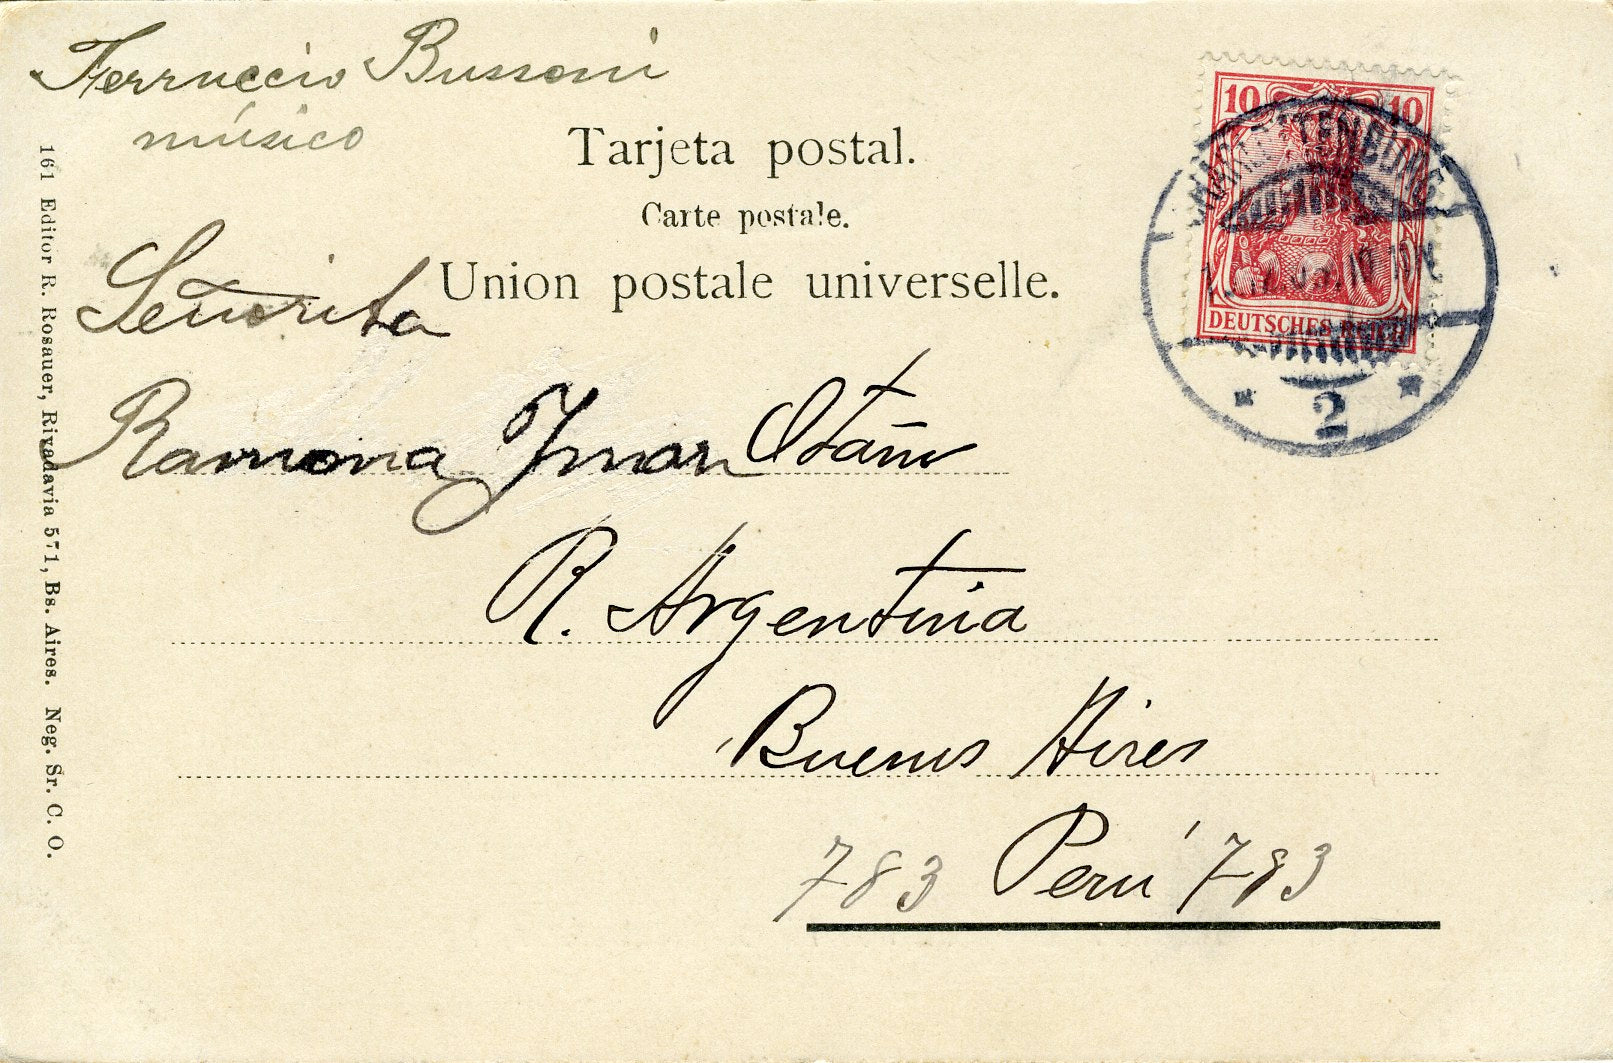 Ferruccio Bussoni
músico
Tarjeta postal.
Carte postale.
Union postale universelle.
Señorita
Ramona
R. Argentina
Buenos Aires
783 Perú 783
161 Editor R. Rosauer, Rivadavia 571, Bs. Aires. Neg. Sr. C. O.
10 10
DEUTSCHES REICH
CHARLOTTENBURG
2